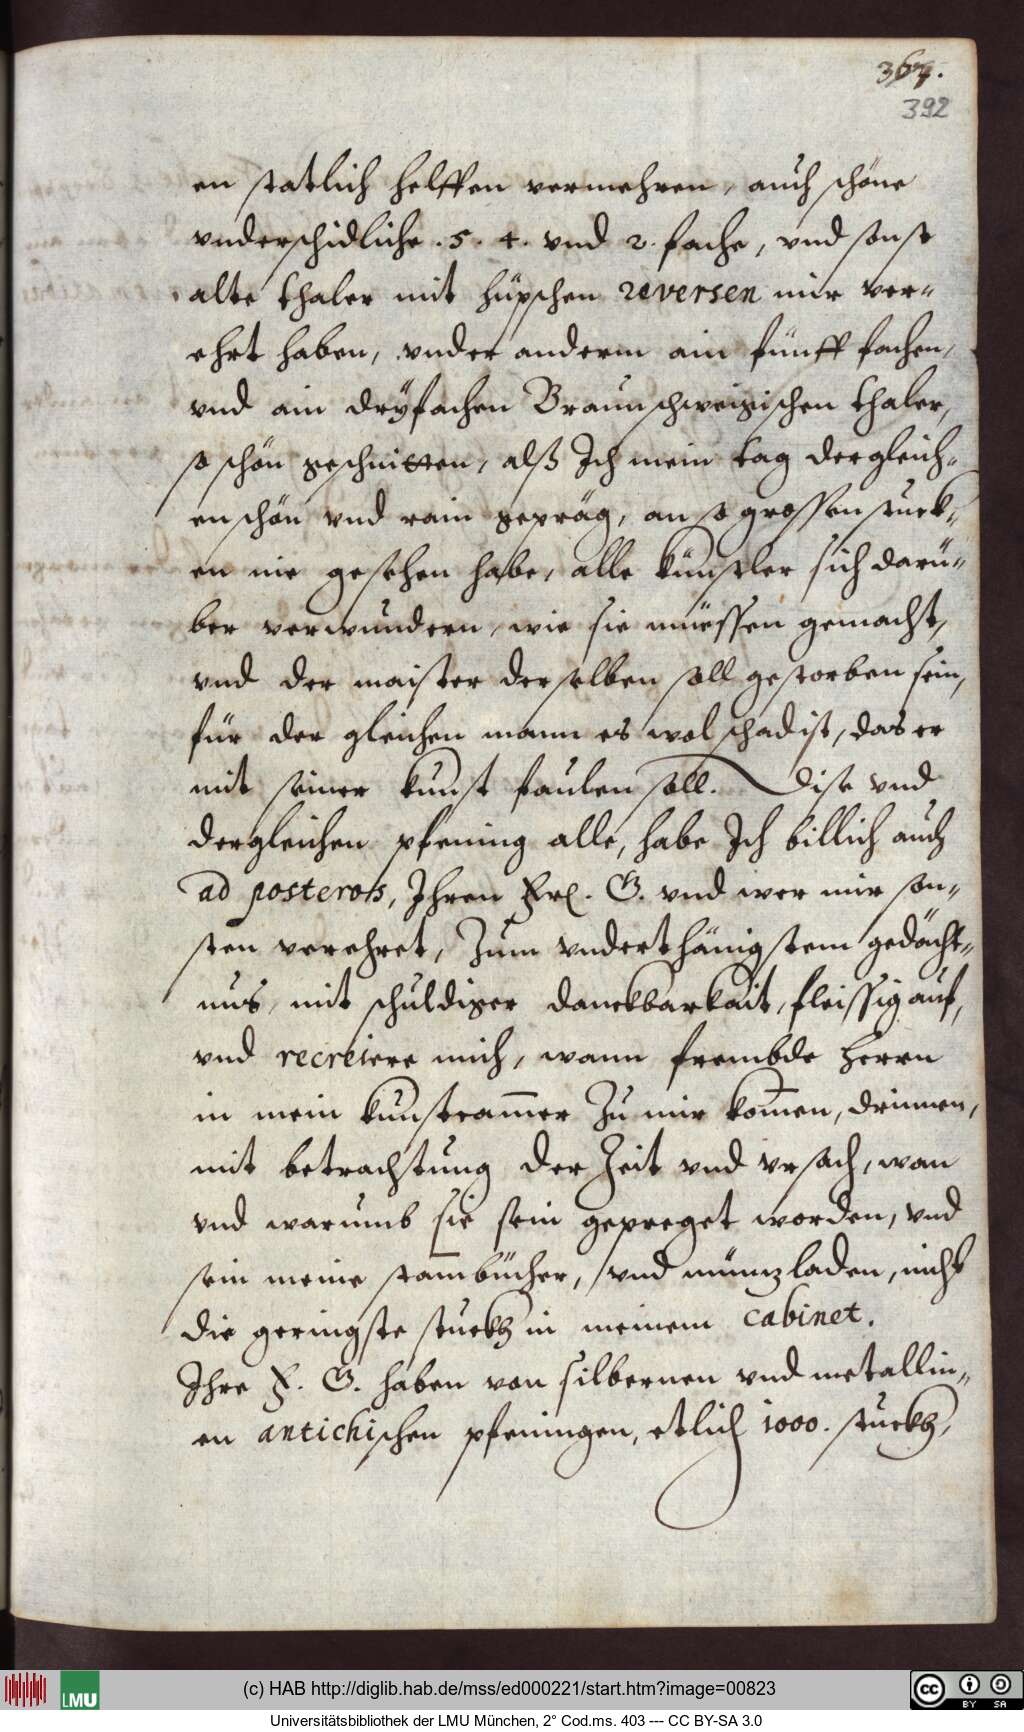 367.
392
en statlich helffen vermehren, auch schöne
vnderschidliche .5. 4. vnd 2. fache, vnd sonst
alte thaler mit hüpschen reversen mir ver-
ehrt haben, vnder anderm ain fünff fachen,
vnd ain dryfachen Braunschweigischen thaler,
so schön geschnitten, alß Ich mein tag dergleich-
en schön vnd rain gepräg, an so grossen stuck-
en nie gesehen habe, alle künstler sich darü-
ber verwundern, wie sie müessen gemacht,
vnd der maister derselben soll gestorben sein,
für der gleichen mann es wol schad ist, das er
mit seiner kunst faulen soll. Dise vnd
dergleichen pfening alle, habe Ich billich auch
ad posteros, Ihren Frl. G. vnd wer mir son-
sten verehret, Zum vnderthänigstem gedächt-
nus, mit schuldiger danckbarkait, fleissig auf,
vnd recreiere mich, wann frembde herrn
in mein kunstcam̄er Zu mir kom̄en, drinnen,
mit betrachtung der Zeit vnd vrsach, wan
vnd warumb sie sein gepreget worden, vnd
sein meine stambücher, vnd münzladen, nicht
die geringste stuckh in meinem cabinet.
Ihre F. G. haben von silbernen vnd metallin-
en antichischen pfeningen, etlich 1000. stuckh,
(c) HAB http://diglib.hab.de/mss/ed000221/start.htm?image=00823
LMU
cc BY SA
Universitätsbibliothek der LMU München, 2° Cod.ms. 403 --- CC BY-SA 3.0